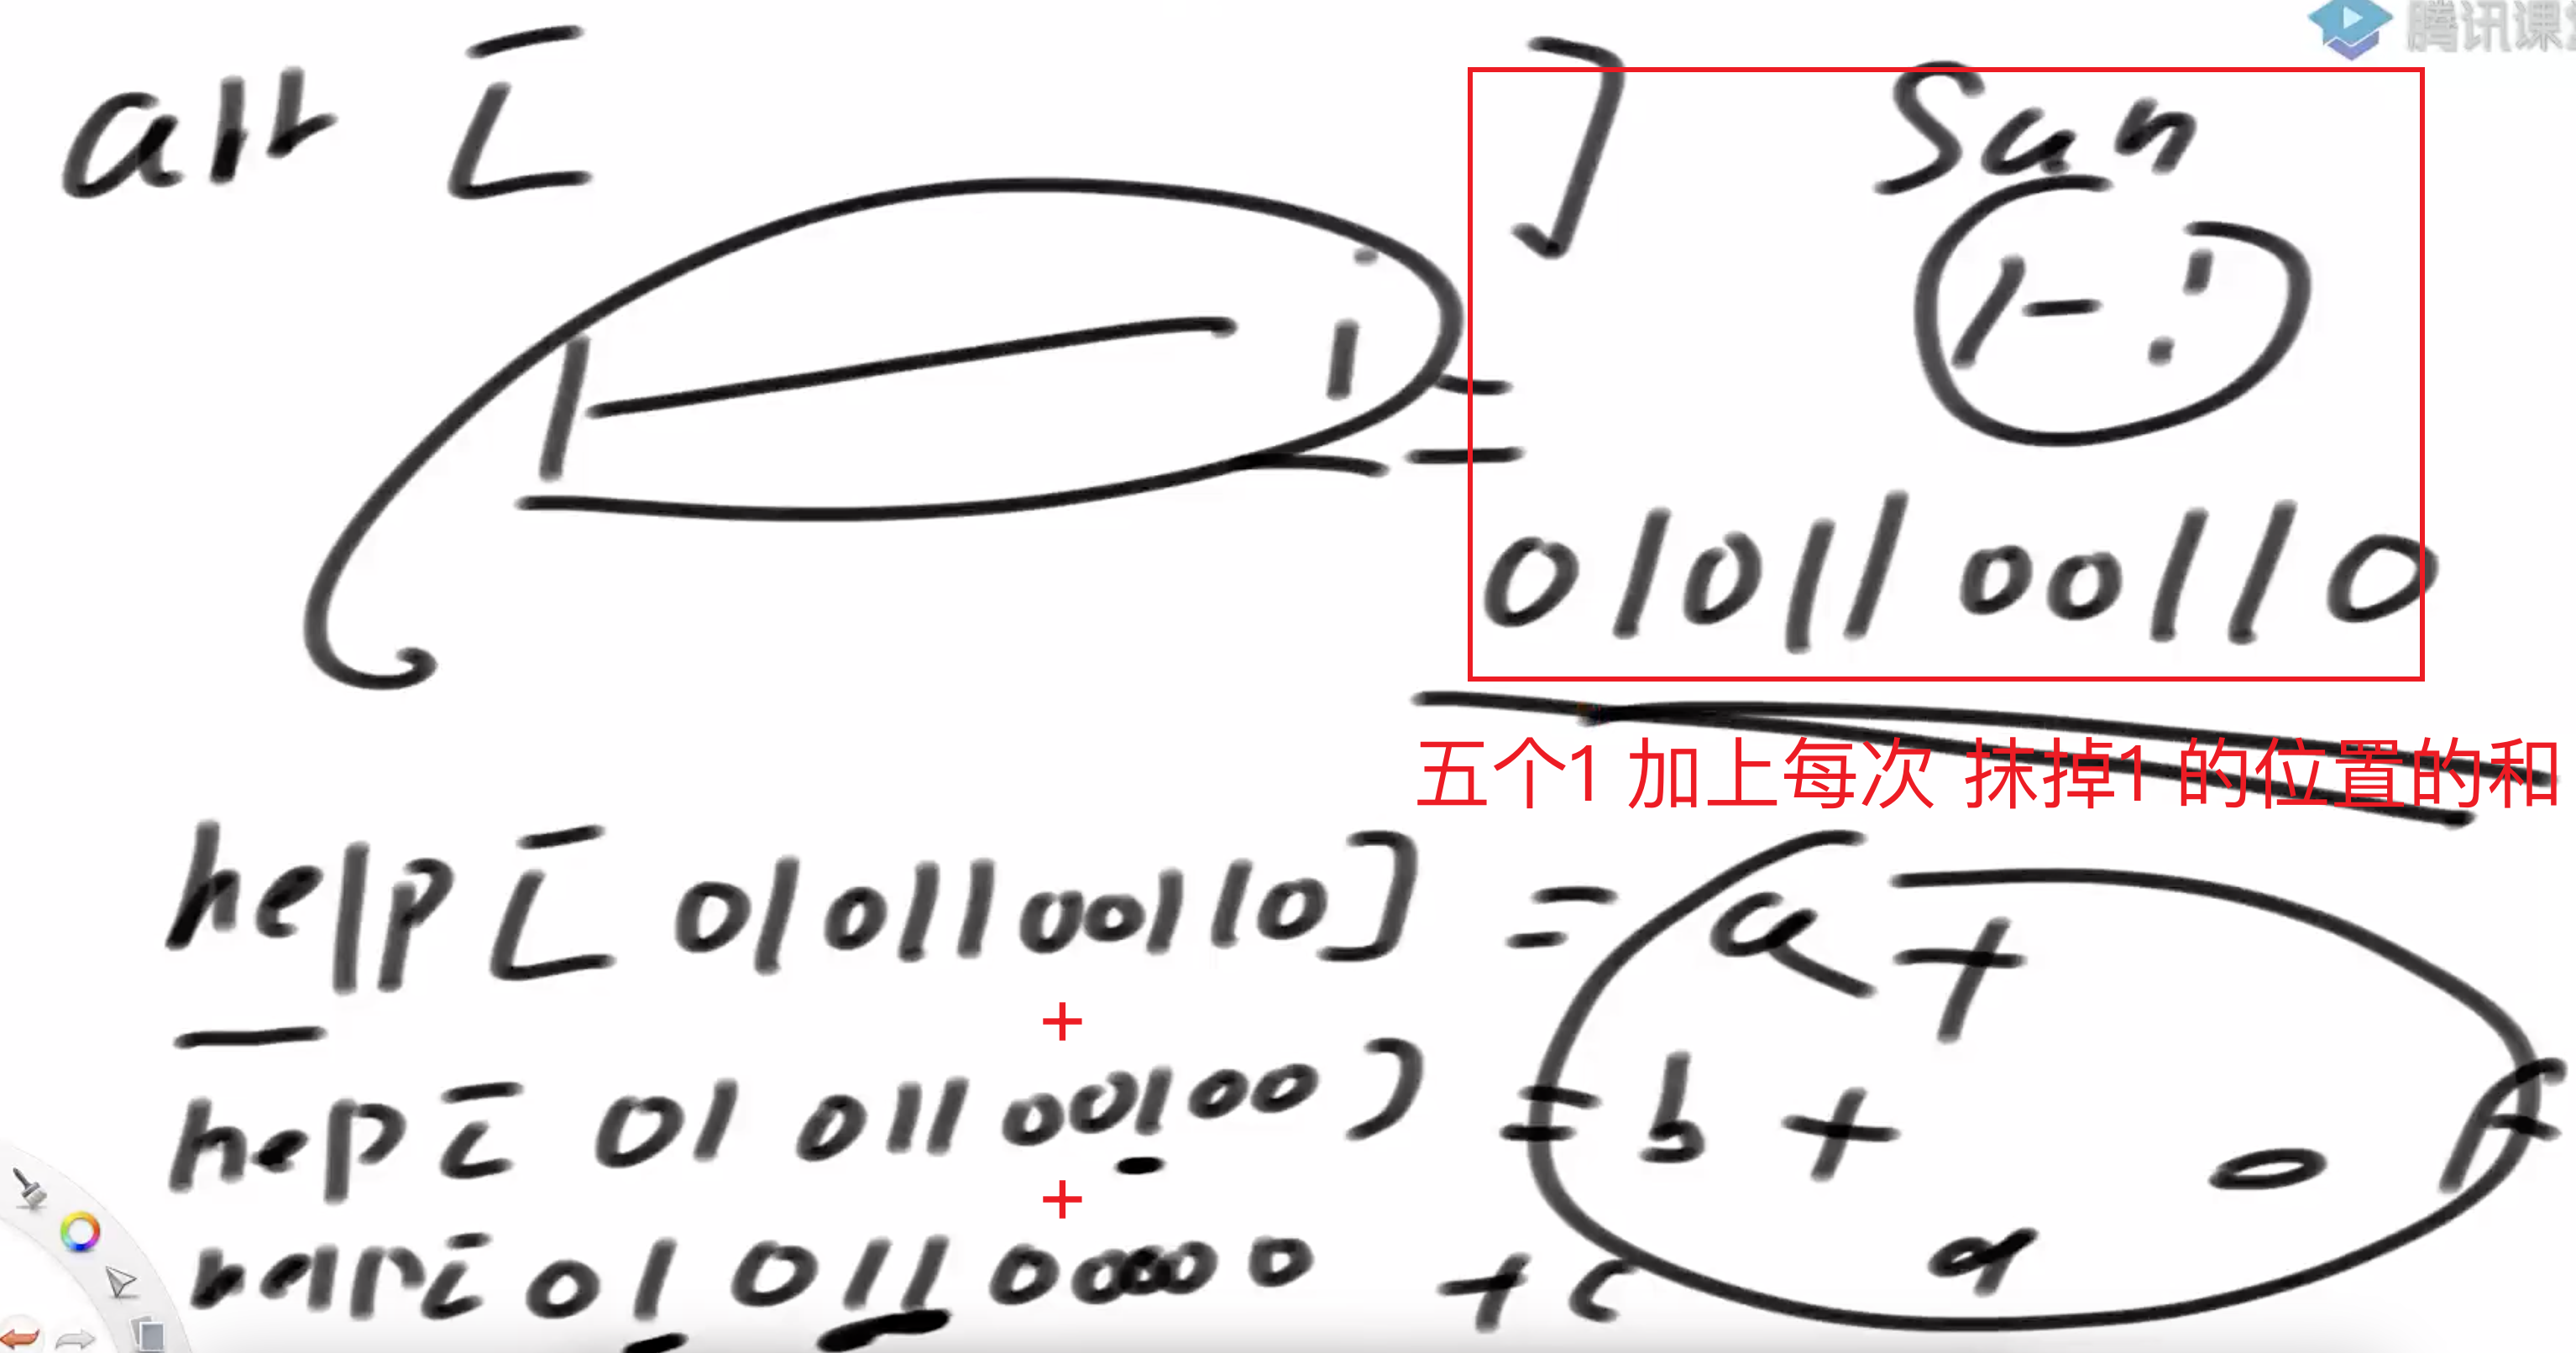 腾讯课
arr [ ] Sum
1 - i
1 i =
01011001 10
五个1 加上每次 抹掉1 的位置的和
help [ 01011001 10] = a +
+
help [ 01011001 00 ) = b +
+
help [ 01011000 00 + c